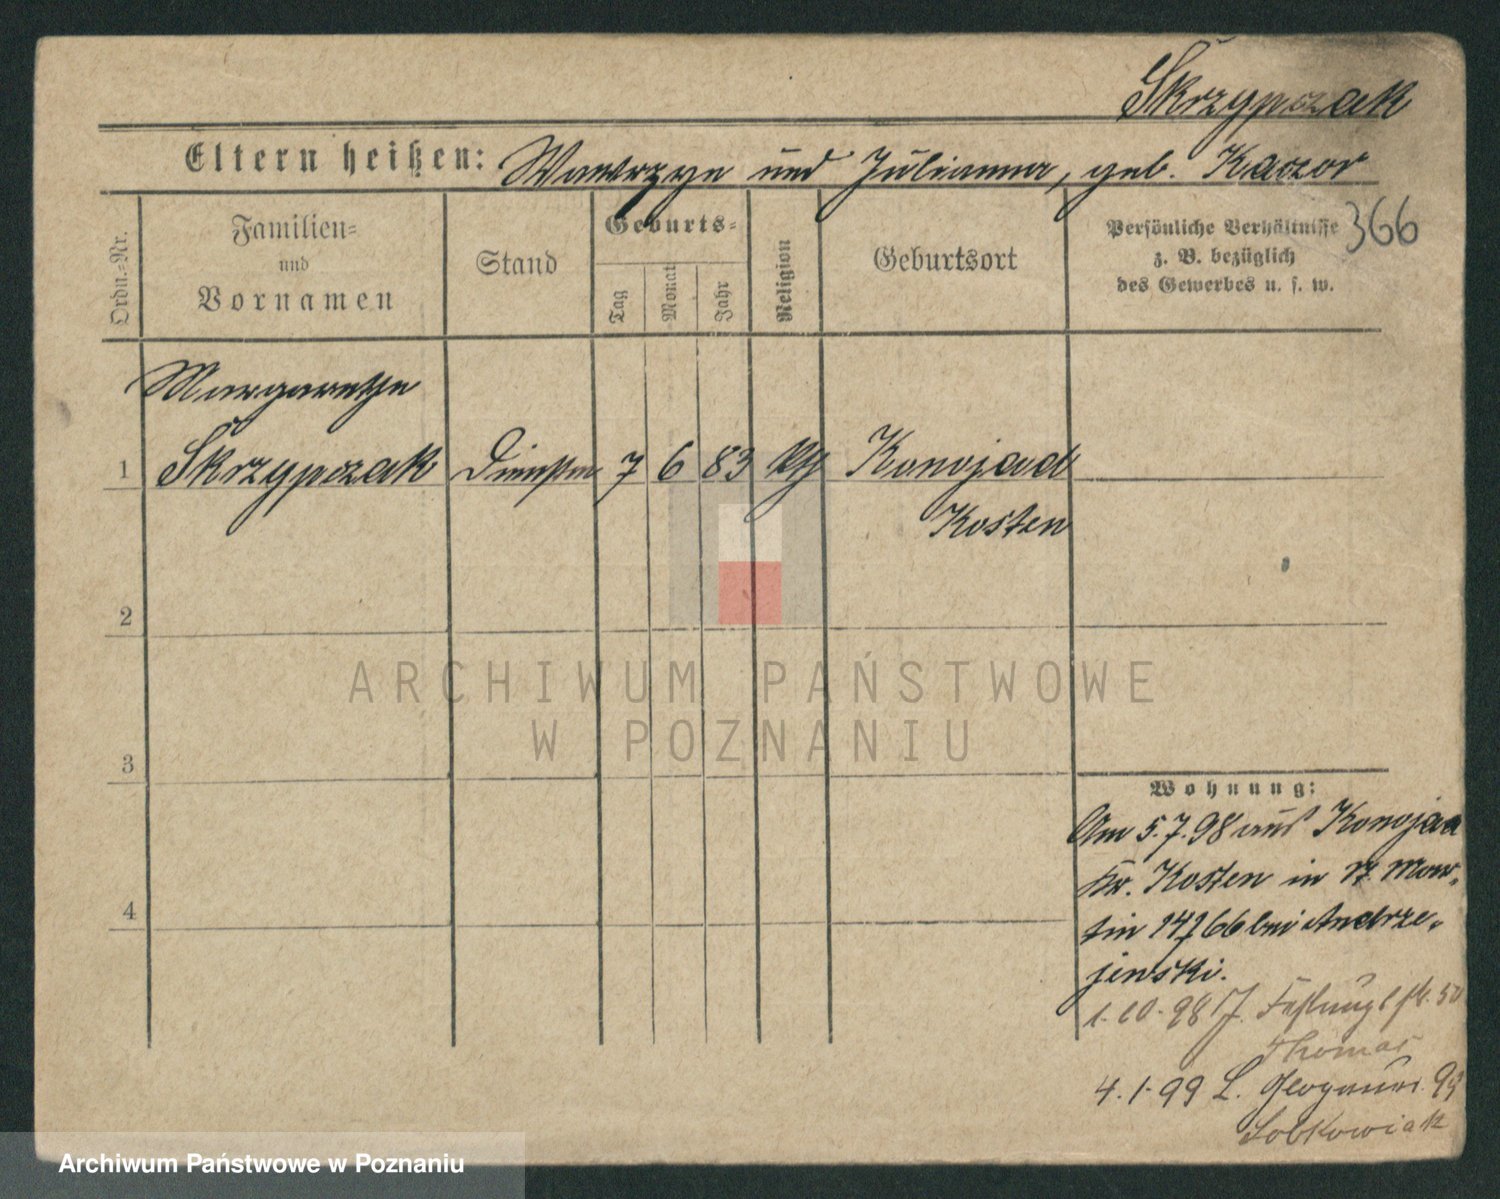 Skrzypczak
Eltern heißen: Wawrzyn und Julianna, geb. Kaczor
366
Ordn.-Nr.
Familien-
und
Vornamen
Stand
Geburts-
Tag
Monat
Jahr
Religion
Geburtsort
Persönliche Verhältnisse
z. B. bezüglich
des Gewerbes u. s. w.
Margarethe
1 Skrzypczak 7 6 83 kth Konojad
Kosten
2
3
4
ARCHIWUM PAŃSTWOWE
W POZNANIU
Wohnung:
Am 5.7.98 aus Konojad
Kr. Kosten in St. Mar-
tin bei Andrze-
jewski.
1.10.98 J.
Thomas
4.1.99 L. Glogauer. 99
Sobkowiak
Archiwum Państwowe w Poznaniu